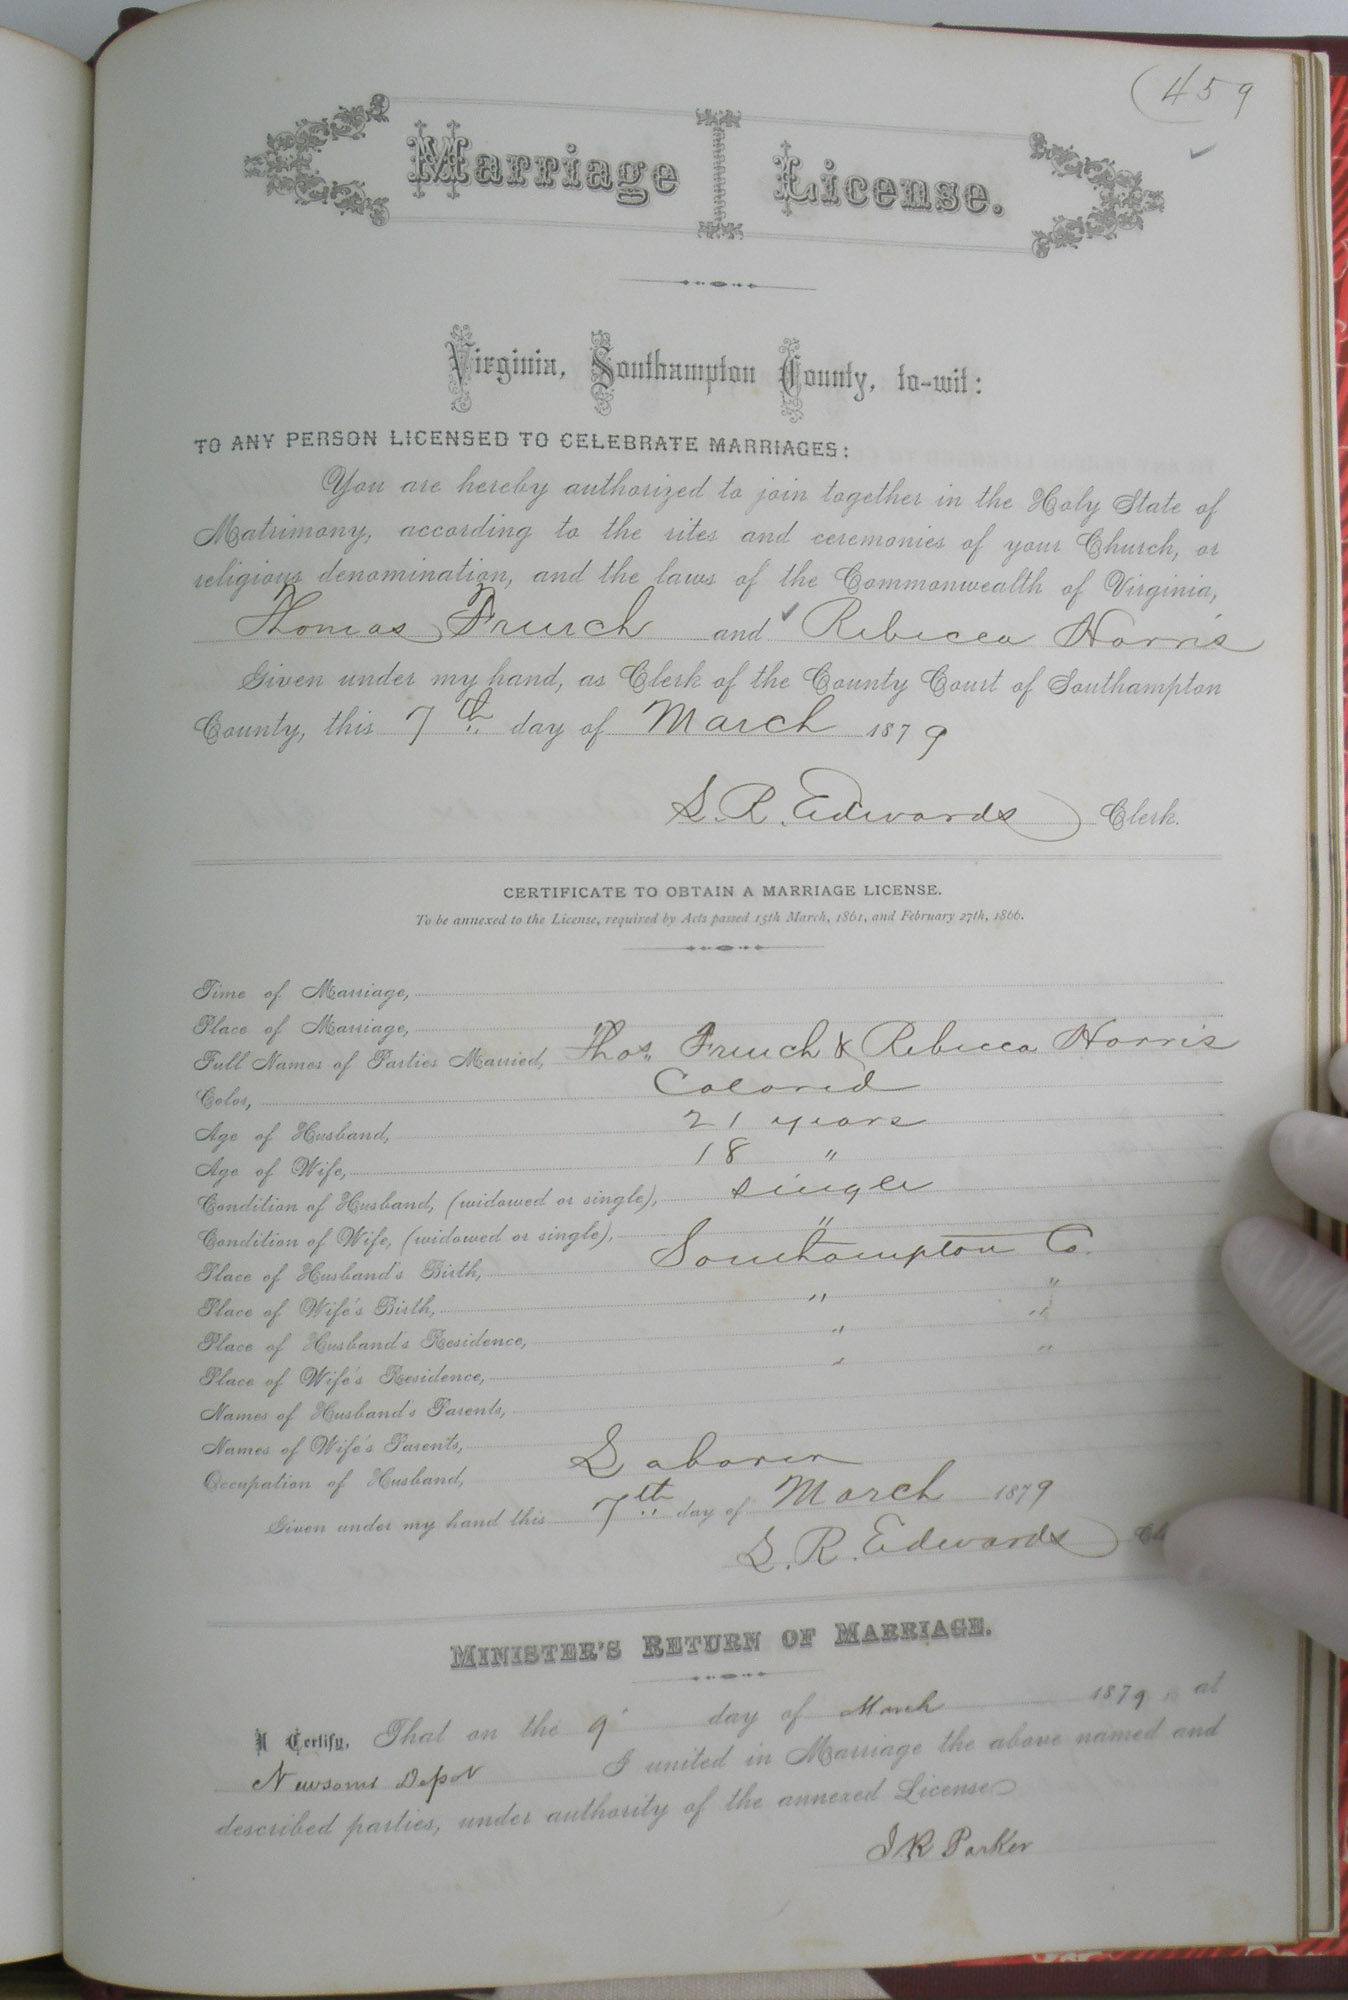 459
Marriage License.
Virginia, Southampton County, to-wit:
TO ANY PERSON LICENSED TO CELEBRATE MARRIAGES:
You are hereby authorized to join together in the Holy State of
Matrimony, according to the rites and ceremonies of your Church, or
religious denomination, and the laws of the Commonwealth of Virginia,
Thomas French and Rebecca Harris
Given under my hand, as Clerk of the County Court of Southampton
County, this 7th day of March 1879
S. R. Edwards Clerk.
CERTIFICATE TO OBTAIN A MARRIAGE LICENSE.
To be annexed to the License, required by Acts passed 15th March, 1861, and February 27th, 1866.
Time of Marriage,
Place of Marriage,
Full Names of Parties Married, Thos. French & Rebecca Harris
Color, Colored
Age of Husband, 21 years
Age of Wife, 18 "
Condition of Husband, (widowed or single), single
Condition of Wife, (widowed or single), "
Place of Husband's Birth, Southampton Co.
Place of Wife's Birth, " "
Place of Husband's Residence, " "
Place of Wife's Residence, " "
Names of Husband's Parents,
Names of Wife's Parents,
Occupation of Husband, Laborer
Given under my hand this 7th day of March 1879
S. R. Edwards Cle
MINISTER'S RETURN OF MARRIAGE.
I Certify, That on the 9 day of March 1879, at
Newsoms Depot I united in Marriage the above named and
described parties, under authority of the annexed License
J. R Parker